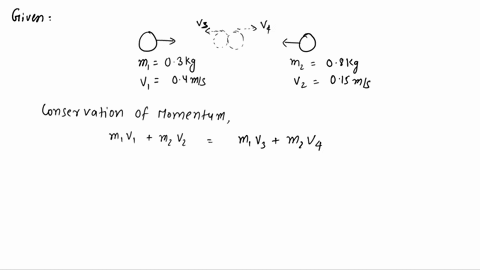 Given:
V₃ V₄
m₁ = 0.3 kg
V₁ = 0.4 m/s
m₂ = 0.8 kg
V₂ = 0.15 m/s
Conservation of Momentum,
m₁V₁ + m₂V₂ = m₁V₃ + m₂V₄